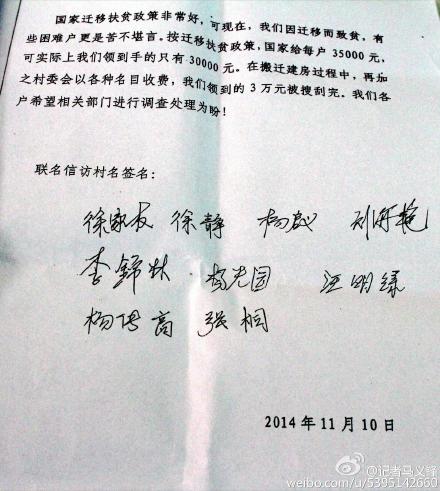 国家迁移扶贫政策非常好，可现在，我们因迁移而致贫，有
些困难户更是苦不堪言。按迁移扶贫政策，国家给每户 35000 元，
可实际上我们领到手的只有 30000 元。在搬迁建房过程中，再加
之村委会以各种名目收费，我们领到的 3 万元被搜刮完。我们各
户希望相关部门进行调查处理为盼！
联名信访村名签名：
徐家友 徐静 杨毅
李锦林 杨光园 汪明绿
杨传高 张桐
2014 年 11 月 10 日
@记者马义锋
weibo.com/u/5395142660